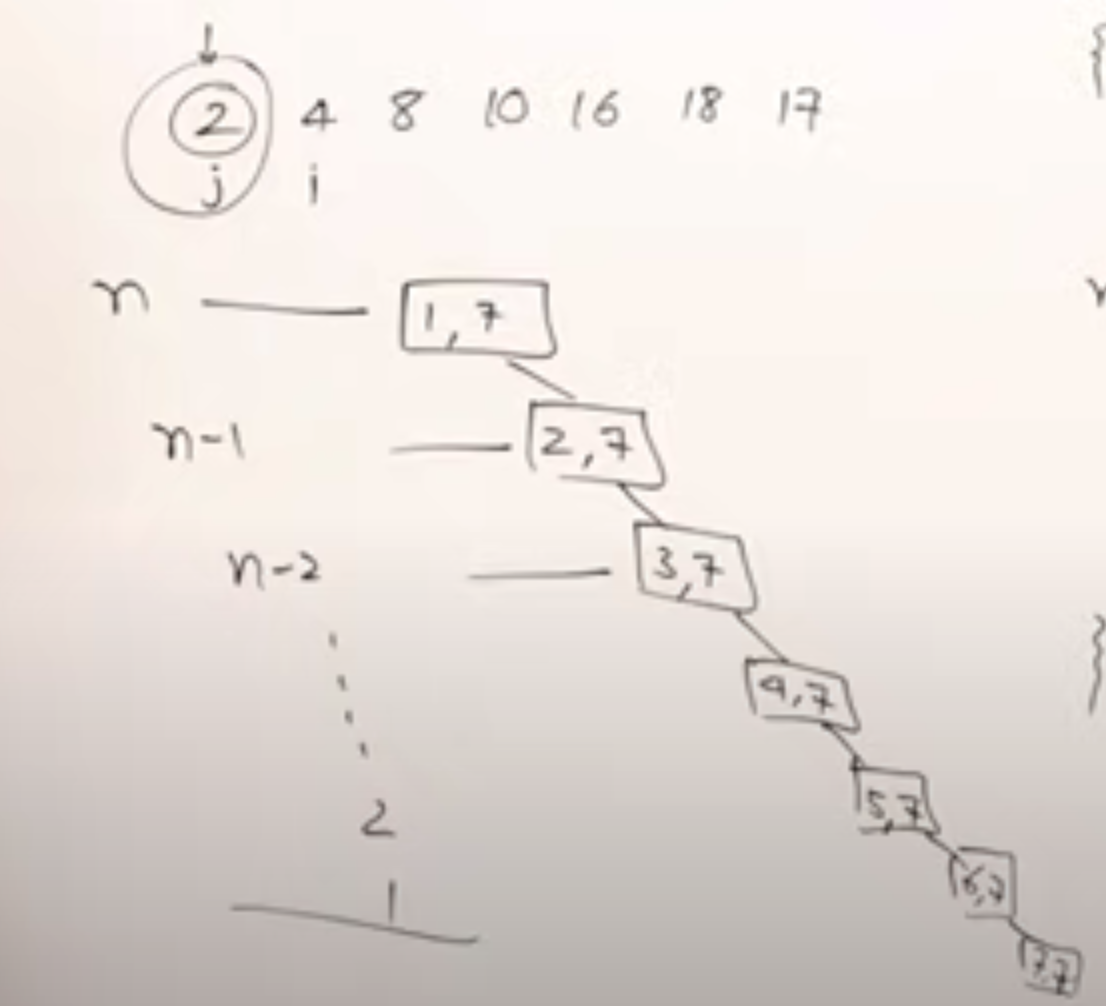 2 4 8 10 16 18 17
j i
n 1,7
n-1 2,7
n-2 3,7
4,7
5,7
2
6,7
1
7,7